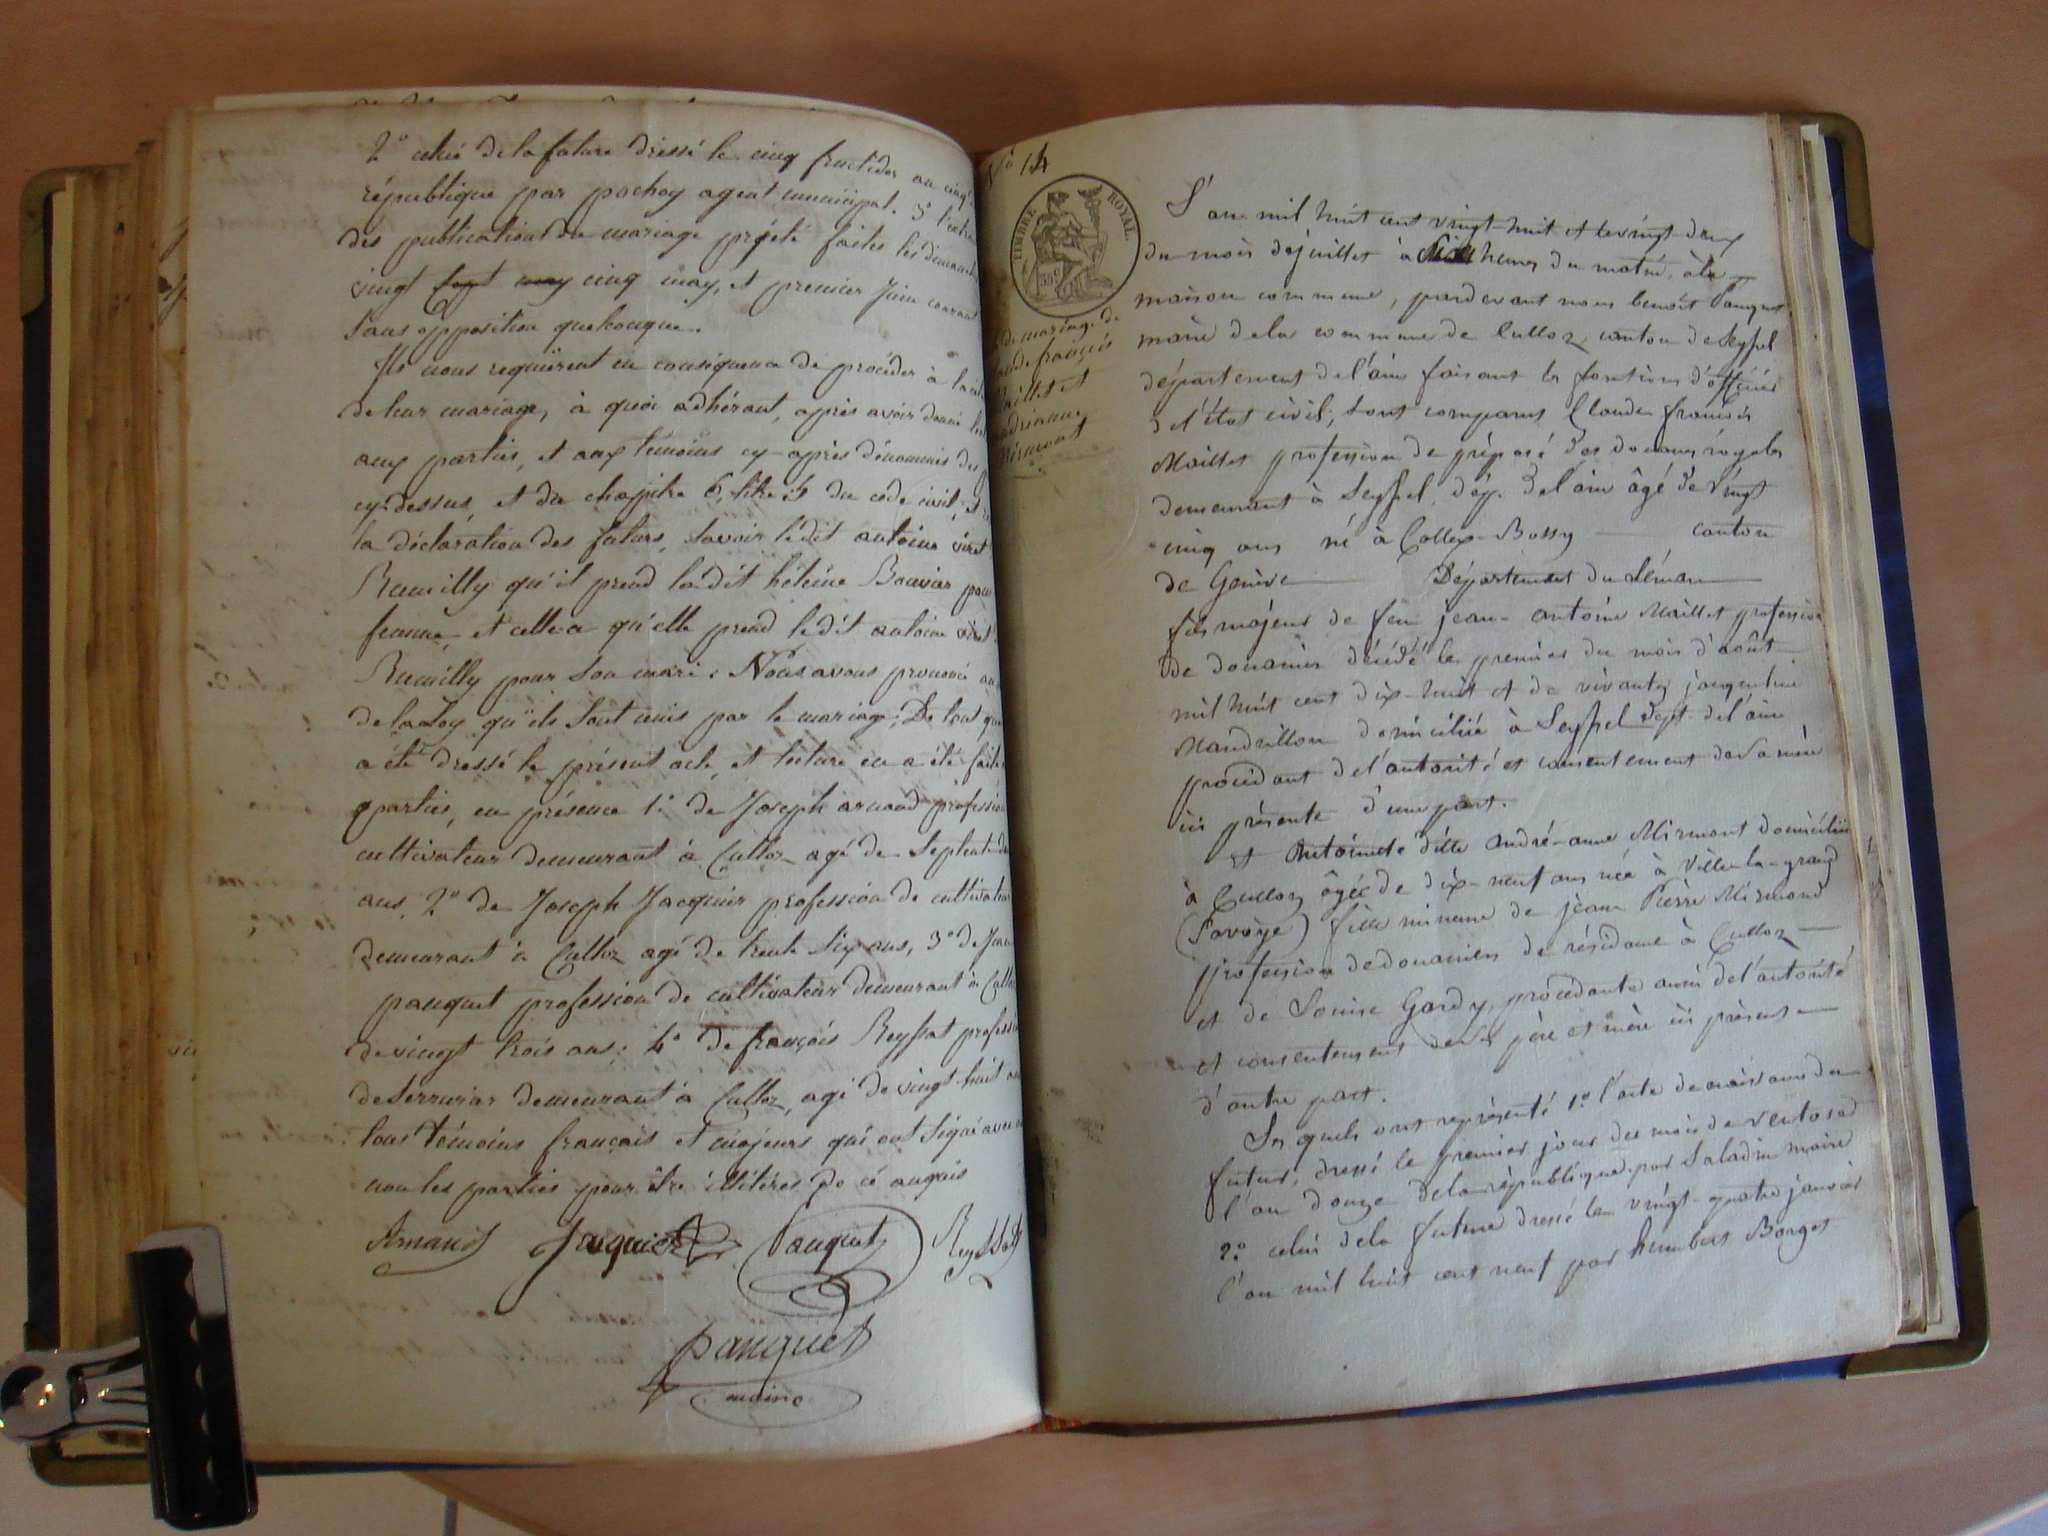 2° celui de la future dressé le cinq fructidor an cinq
république par pochoy agent municipal. 3° l'extra
des publications du mariage projeté faites les dimanches
vingt cinq may, et premier Juin courant
sans opposition quelconque.
Ils nous requièrent en conséquence de procéder à la
de leur mariage, à quoi adhérant, après avoir donné
aux parties, et aux témoins cy-après dénommés des
cy-dessus, et du chapitre 6, titre 5 du code civil, et
la déclaration des futurs, savoir ledit antoine viret
Rumilly qu'il prend ladit hélène Bouvier pour
femme, et celle-a qu'elle prend ledit antoine viret
Rumilly pour son mari : Nous avons prononcé au
de la Loy qu'ils sont unis par le mariage ; De tout quoi
a été dressé le présent acte, et lecture en a été faite
parties, en présence 1° de Joseph arnaud profession
cultivateur demeurant à Culloz agé de Septante
ans, 2° de Joseph Jacquier profession de cultivateur
demeurant à Culloz agé de trente six ans, 3° de
pauquet profession de cultivateur demeurant à Culloz
de vingt trois ans ; 4° De françois Reyssat profession
de serrurier demeurant à Culloz, agé de vingt huit ans
tous témoins français et majeurs qui ont signé avec
non les parties pour être illitérés de ce anquis
Arnaud Jacquier Pauquet Reyssat
pauquet
maire
N° 14
TIMBRE ROYAL
de mariage de
aude françois
Maillet et
andrianne
Mirmont
L'an mil huit cent vingt-huit et le vingt-deux
du mois de juillet à heures du matin, à la
maison commune, pardevant nous benoit Pauquet
maire de la commune de Culloz, canton de Seyssel
département de l'ain faisant les fonctions d'officier
de l'état civil, sont comparus Claude françois
Maillet profession de préposé des douanes royales
demeurant à Seyssel, dép. de l'ain âgé de vingt
cinq ans né à Collex-Bossy canton
de Genève Département du Léman
fils majeur de feu jean-antoine Maillet profession
de douanier décédé le premier du mois d'août
mil huit cent dix-huit et de vivante jacqueline
Mandrillon domiciliée à Seyssel dept. de l'ain
procédant de l'autorité et consentement de sa mère
ici présente d'une part.
Et Antoinette dite andré-anne Mirmont domiciliée
à Culloz âgée de dix-neuf ans née à ville-la-grand
(Savoye) fille mineure de jean Pierre Mirmond
profession de douanier de résidence à Culloz
et de Louise Gardy, procédante aussi de l'autorité
et consentement de ses père et mère ici présent
d'autre part.
Lesquels ont représenté 1° l'acte de naissance du
futur, dressé le premier jour du mois de ventose
l'an douze de la république par Saladin maire
2° celui de la future dressé le vingt-quatre janvier
l'an mil huit cent neuf par humbert Borget